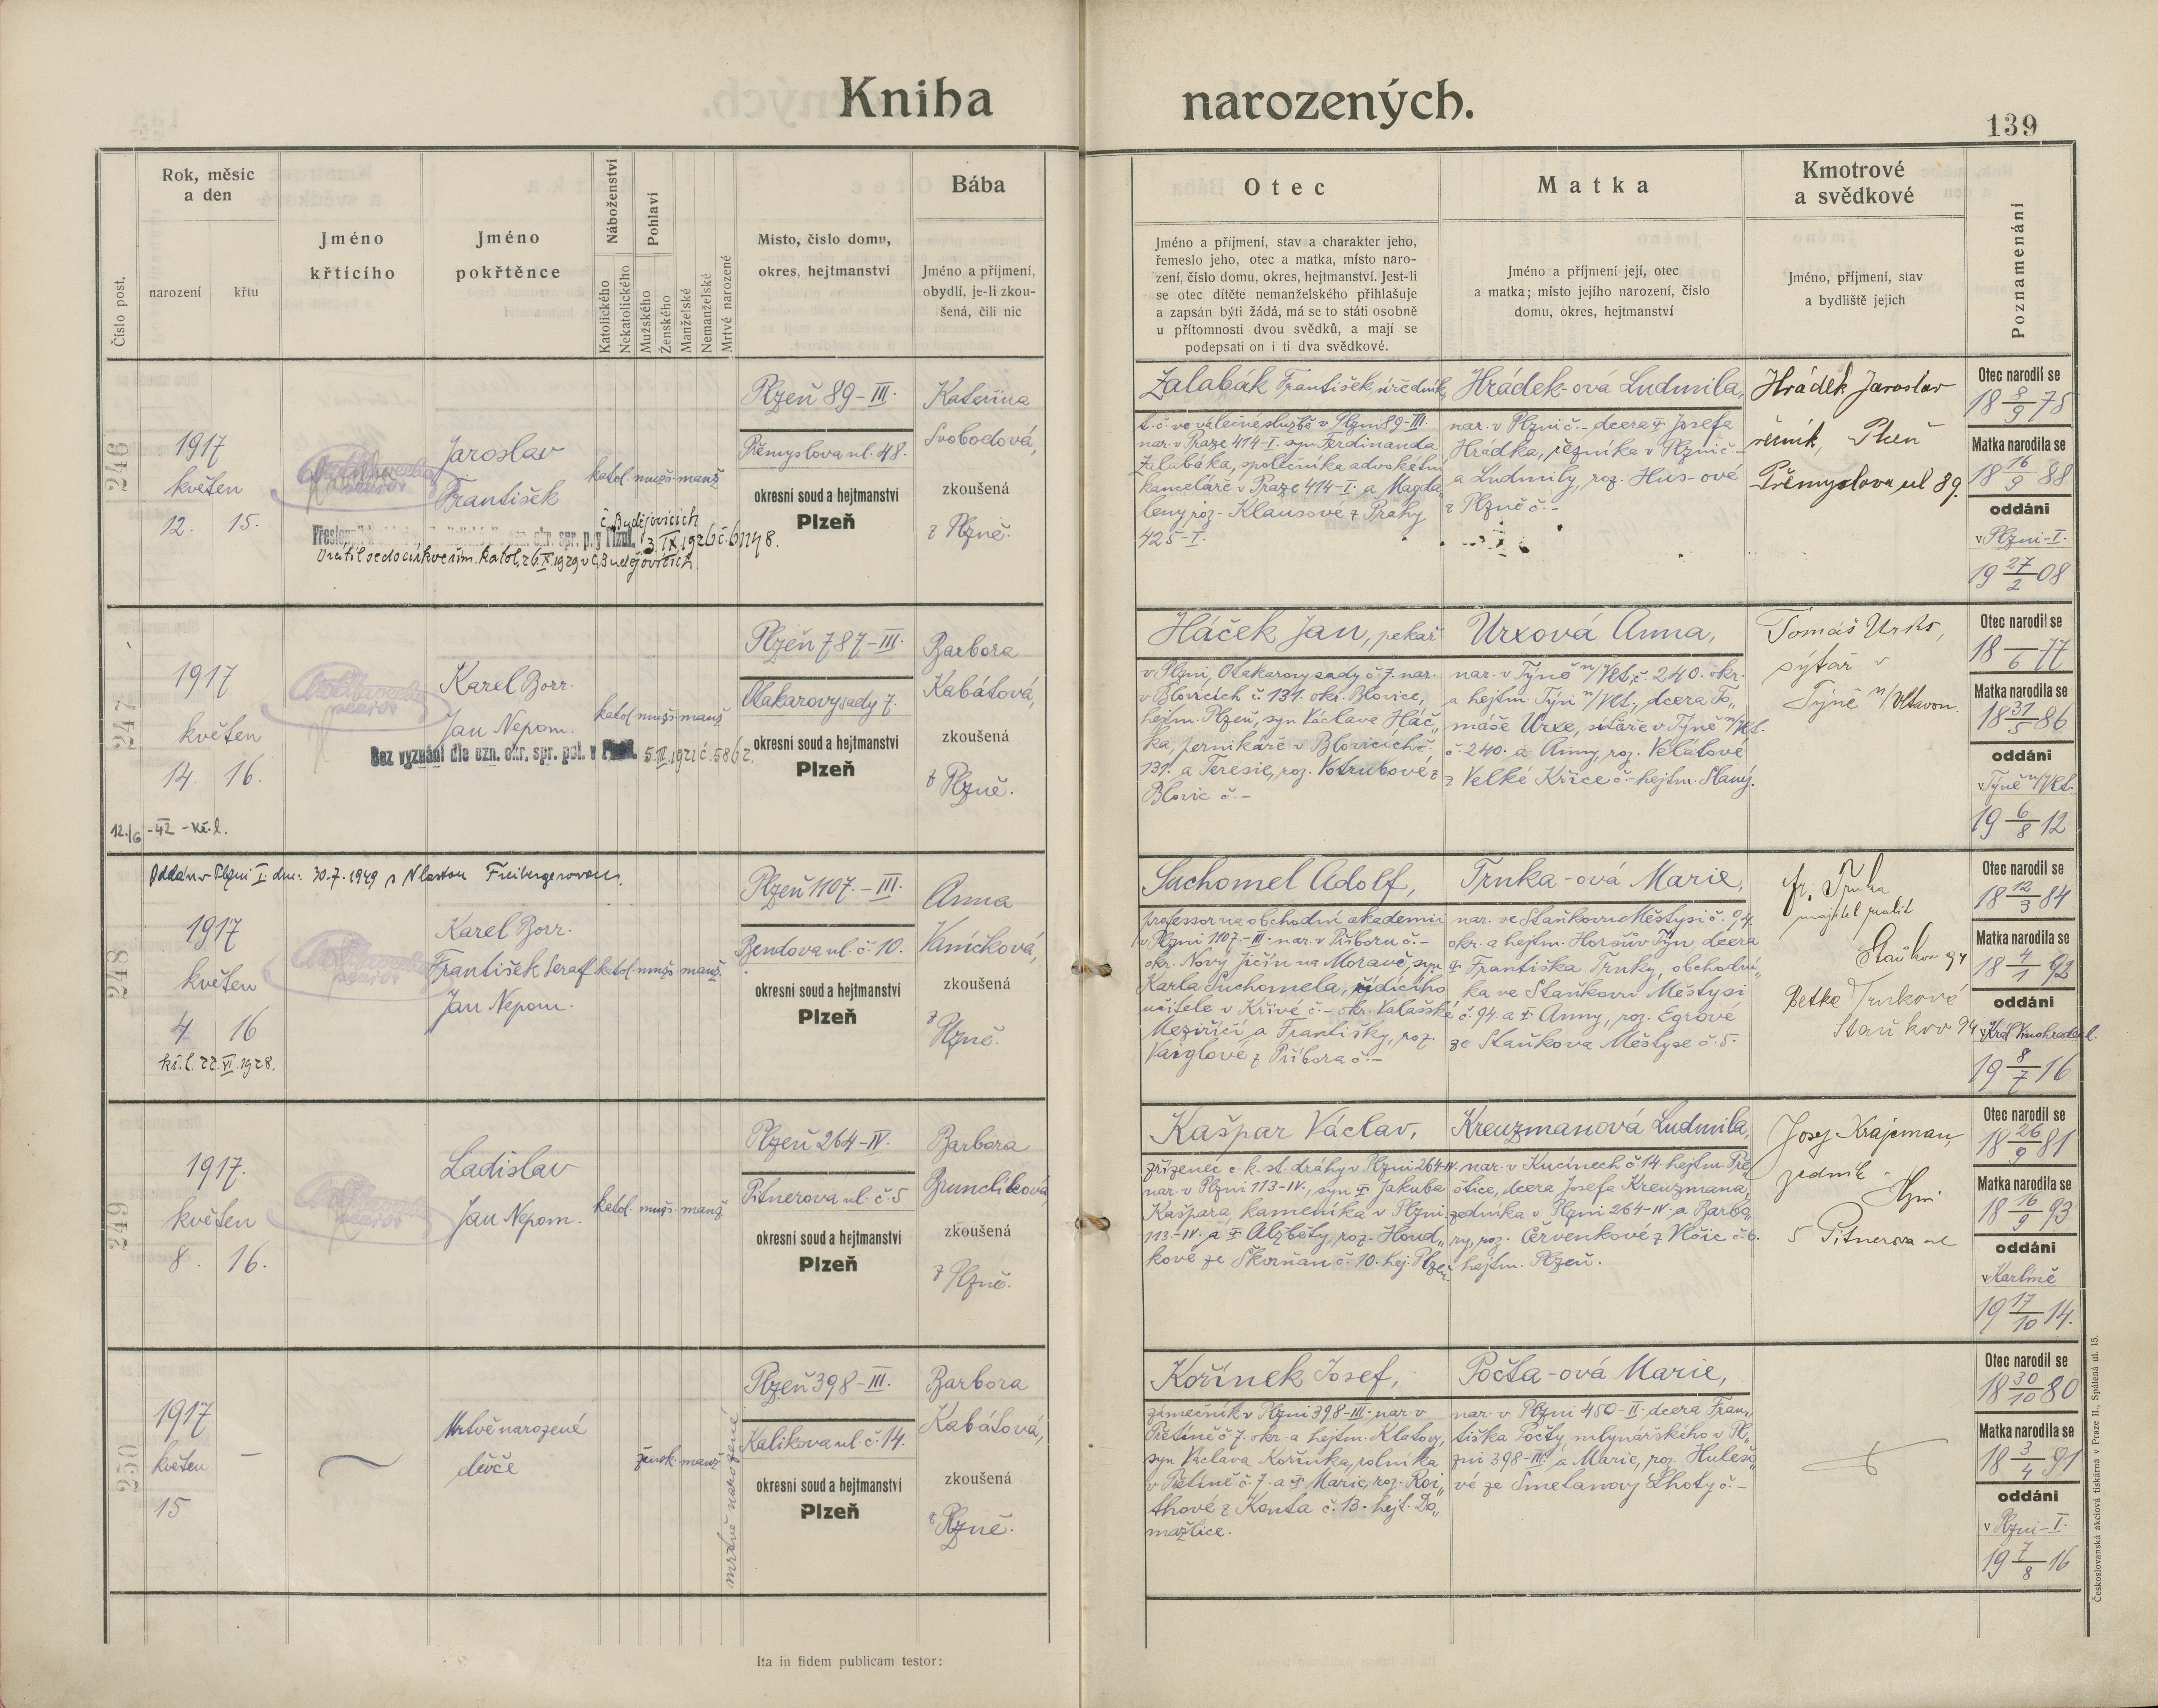 Kniha narozených.
139
Číslo post.
Rok, měsíc
a den
narození
křtu
Jméno
křtícího
Jméno
pokřtěnce
Náboženství
Katolického
Nekatolického
Pohlaví
Mužského
Ženského
Manželské
Nemanželské
Mrtvě narozené
Místo, číslo domu,
okres, hejtmanství
Bába
Jméno a příjmení,
obydlí, je-li zkou-
šená, čili nic
Otec
Jméno a příjmení, stav a charakter jeho,
řemeslo jeho, otec a matka, místo naro-
zení, číslo domu, okres, hejtmanství. Jest-li
se otec dítěte nemanželského přihlašuje
a zapsán býti žádá, má se to státi osobně
u přítomnosti dvou svědků, a mají se
podepsati on i ti dva svědkové.
Matka
Jméno a příjmení její, otec
a matka; místo jejího narození, číslo
domu, okres, hejtmanství
Kmotrové
a svědkové
Jméno, příjmení, stav
a bydliště jejich
Poznamenání
246
1917
květen
12. 15.
Jaroslav
František
katol. mužs. manž
č. Budějovicích
3. IX. 1926 č. 61148.
Vrátil se do církve řím. katol. 26. X. 1929 v Č. Budějovicích.
Plzeň 89-III.
Přemyslova ul. 48.
okresní soud a hejtmanství
Plzeň
Kateřina
Svobodová,
zkoušená
z Plzně.
Zalabák František, úředník,
t. č. ve válečné službě v Plzni 89-III.
nar. v Praze 414-I. syn Ferdinanda
Zalabáka, společníka advokátní
kanceláře v Praze 414-I. a Magda„
leny roz. Klausové z Prahy
425-I.
Hrádek-ová Ludmila,
nar. v Plzni č.- dcera † Josefa
Hrádka, řezníka v Plzni č.-
a Ludmily, roz. Hus-ové
z Plzně č.-
Hrádek Jaroslav
řezník, Plzeň
Přemyslova ul 89.
Otec narodil se
18 8/9 78
Matka narodila se
18 16/9 88
oddáni
v Plzni-I.
19 27/2 08
247
1917
květen
14. 16.
12./6 -42 -kř. l.
Karel Borr.
Jan Nepom.
katol. mužs. manž
Bez vyznání dle ozn. okr. spr. pol. v Plzni. 5. III. 1921 č. 5862.
Plzeň 787-III.
Otakarovy sady 7.
okresní soud a hejtmanství
Plzeň
Barbora
Kabátová,
zkoušená
z Plzně.
Háček Jan, pekař
v Plzni, Otakarovy sady č. 7. nar.
v Blovicích č. 131. okr. Blovice,
hejtm. Plzeň, syn Václava Háč„
ka, perníkáře v Blovicích č.
131. a Teresie, roz. Votrubové z
Blovic č.-
Urxová Anna,
nar. v Týně n/Vlt. č. 240. okr.
a hejtm. Týn n/Vlt., dcera To„
máše Urxe, sítaře v Týně n/Vlt.
č. 240. a Anny, roz. Vélátové
z Velké Křice č.- hejtm. Slaný.
Tomáš Urks,
sýtař v
Týně n/Vltavou.
Otec narodil se
18 -/6 77
Matka narodila se
18 31/5 86
oddáni
v Týně n/Vlt.
19 6/8 12
248
Oddán v Plzni I. dne: 30.7.1949 s Vlastou Freibergerovou.
1917
květen
4 16
kř. l. 22. VI. 1928.
Karel Borr.
František Seraf
Jan Nepom.
katol. mužs. manž.
Plzeň 1107.-III.
Bendova ul. č. 10.
okresní soud a hejtmanství
Plzeň
Anna
Kaníčková,
zkoušená
z Plzně.
Suchomel Adolf,
professor na obchodní akademii
v Plzni 1107.-III. nar. v Příboru č.-
okr. Nový Jičín na Moravě, syn
Karla Suchomela, řídícího
učitele v Křivé č.- okr. Valašské
Meziříčí a Františky, roz.
Vaiglové z Příbora č.-
Trnka-ová Marie,
nar. ve Staňkovu Městysi č. 94.
okr. a hejtm. Horšův Týn, dcera
† Františka Trnky, obchodní„
ka ve Staňkovu Městysi
č. 94. a † Anny, roz. Egrové
ze Staňkova Městyse č. 5.
fr. Trnka
majitel realit
Staňkov 94
Betka Trnková
Staňkov 94
Otec narodil se
18 12/3 84
Matka narodila se
18 4/1 92
oddáni
v Král. Vinohradech.
19 8/7 16
249
1917.
květen
8. 16.
Ladislav
Jan Nepom.
katol. mužs. manž
Plzeň 264-IV.
Pitnerova ul. č. 5
okresní soud a hejtmanství
Plzeň
Barbora
Brunclíková
zkoušená
z Plzně.
Kašpar Václav,
zřízenec c. k. st. dráhy v Plzni 264-IV.
nar. v Plzni 113-IV., syn † Jakuba
Kašpara, kameníka v Plzni
113.-IV. a † Alžběty, roz. Houd„
kové ze Škvrňan č. 10. hej. Plzeň.
Kreuzmanová Ludmila,
nar. v Kucínech č. 14. hejtm. Pře
štice, dcera Josefa Kreuzmana,
zedníka v Plzni 264-IV. a Barbo„
ry, roz. Červenkové z Vlčic č. 6.
hejtm. Plzeň.
Josef Krajcman,
zedník
Plzni
5 Pitnerova ul
Otec narodil se
18 26/9 81
Matka narodila se
18 16/9 93
oddáni
v Karlíně
19 17/10 14.
250
1917
květen
15
Mrtvě narozené
děvče
žensk. manž
mrtvě narozené
Plzeň 398-III.
Kalikova ul. č. 14.
okresní soud a hejtmanství
Plzeň
Barbora
Kabátová,
zkoušená
z Plzně.
Kořínek Josef,
zámečník v Plzni 398-III. nar. v
Přetíně č. 7. okr. a hejtm. Klatovy,
syn Václava Kořínka, rolníka
v Přetíně č. 7. a † Marie, roz. Roi„
thové z Kouta č. 13. hejt. Do„
mažlice.
Počta-ová Marie,
nar. v Plzni 450-II. dcera Fran„
tiška Počty, mlynářského v Pl„
zni 398-III. a Marie, roz. Huleš„
vé ze Smetanovy Lhoty č.-
Otec narodil se
18 30/10 80
Matka narodila se
18 3/4 91
oddáni
v Plzni-I.
19 7/8 16
Ita in fidem publicam testor:
Českoslovanská akciová tiskárna v Praze II., Spálená ul. 15.